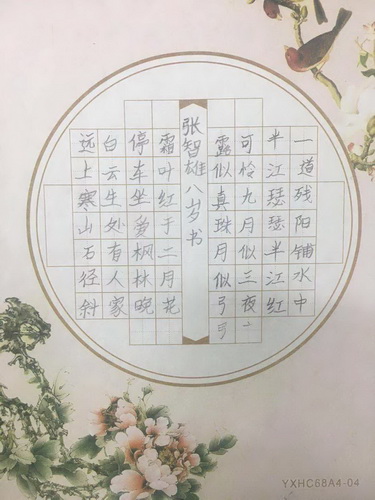 一道残阳铺水中
半江瑟瑟半江红
可怜九月似三夜
露似真珠月似弓
弓
张智雄八岁书
远上寒山石径斜
白云生处有人家
停车坐爱枫林晚
霜叶红于二月花
YXHC68A4-04